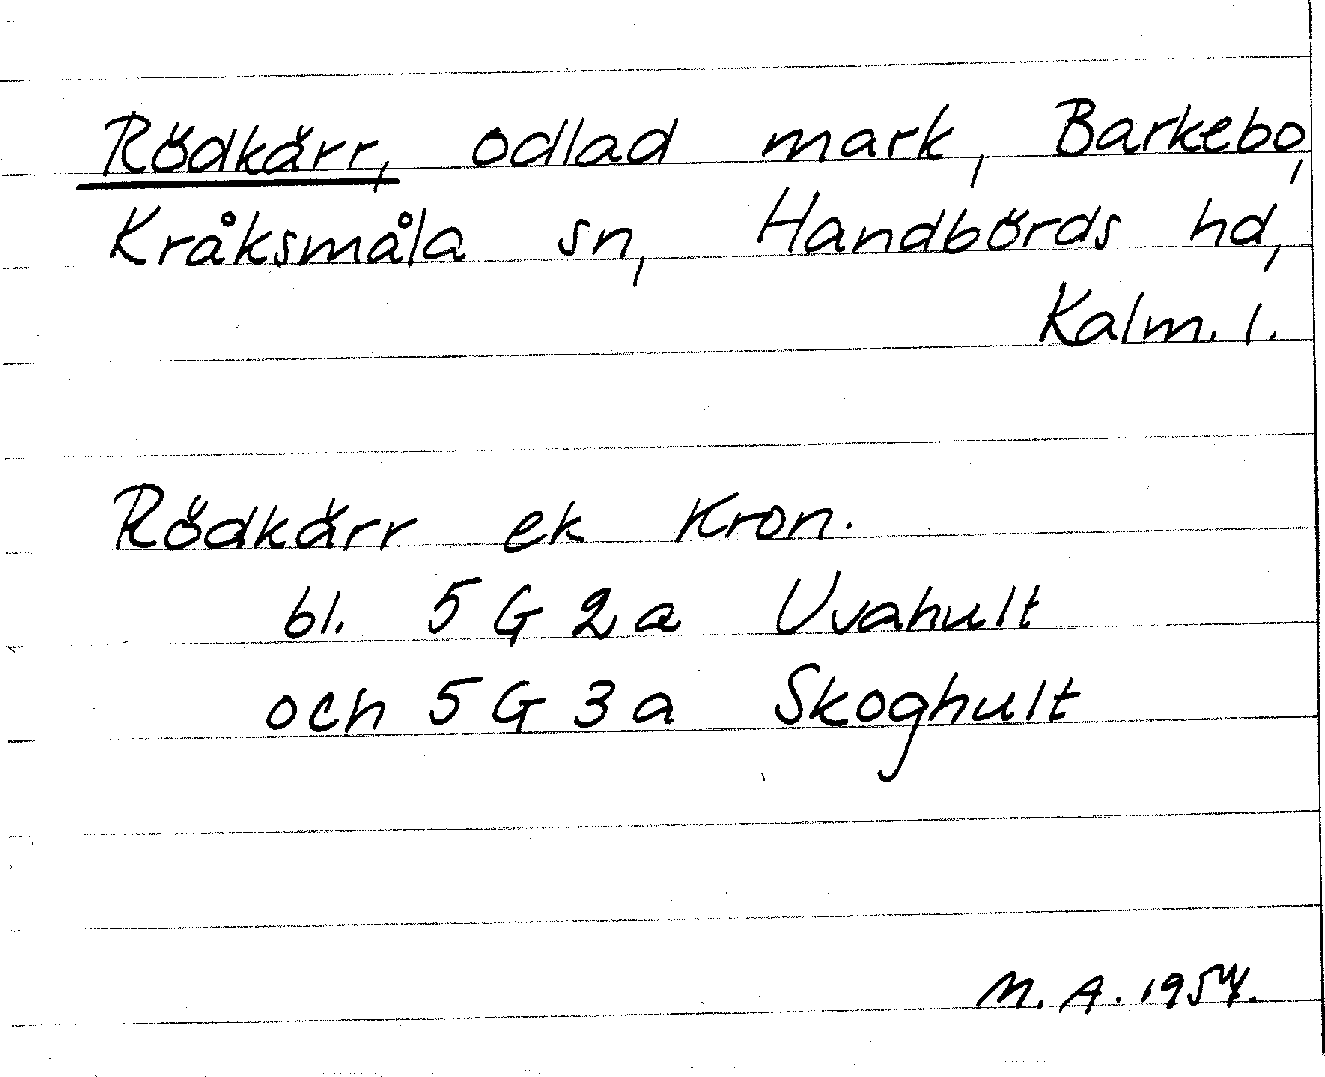 Rödkärr, odlad mark, Barkebo,
Kråksmåla sn, Handbörds hd,
Kalm. l.
Rödkärr ek Kron.
bl. 5 G 2 a Uvahult
och 5 G 3 a Skoghult
M. A. 1954.